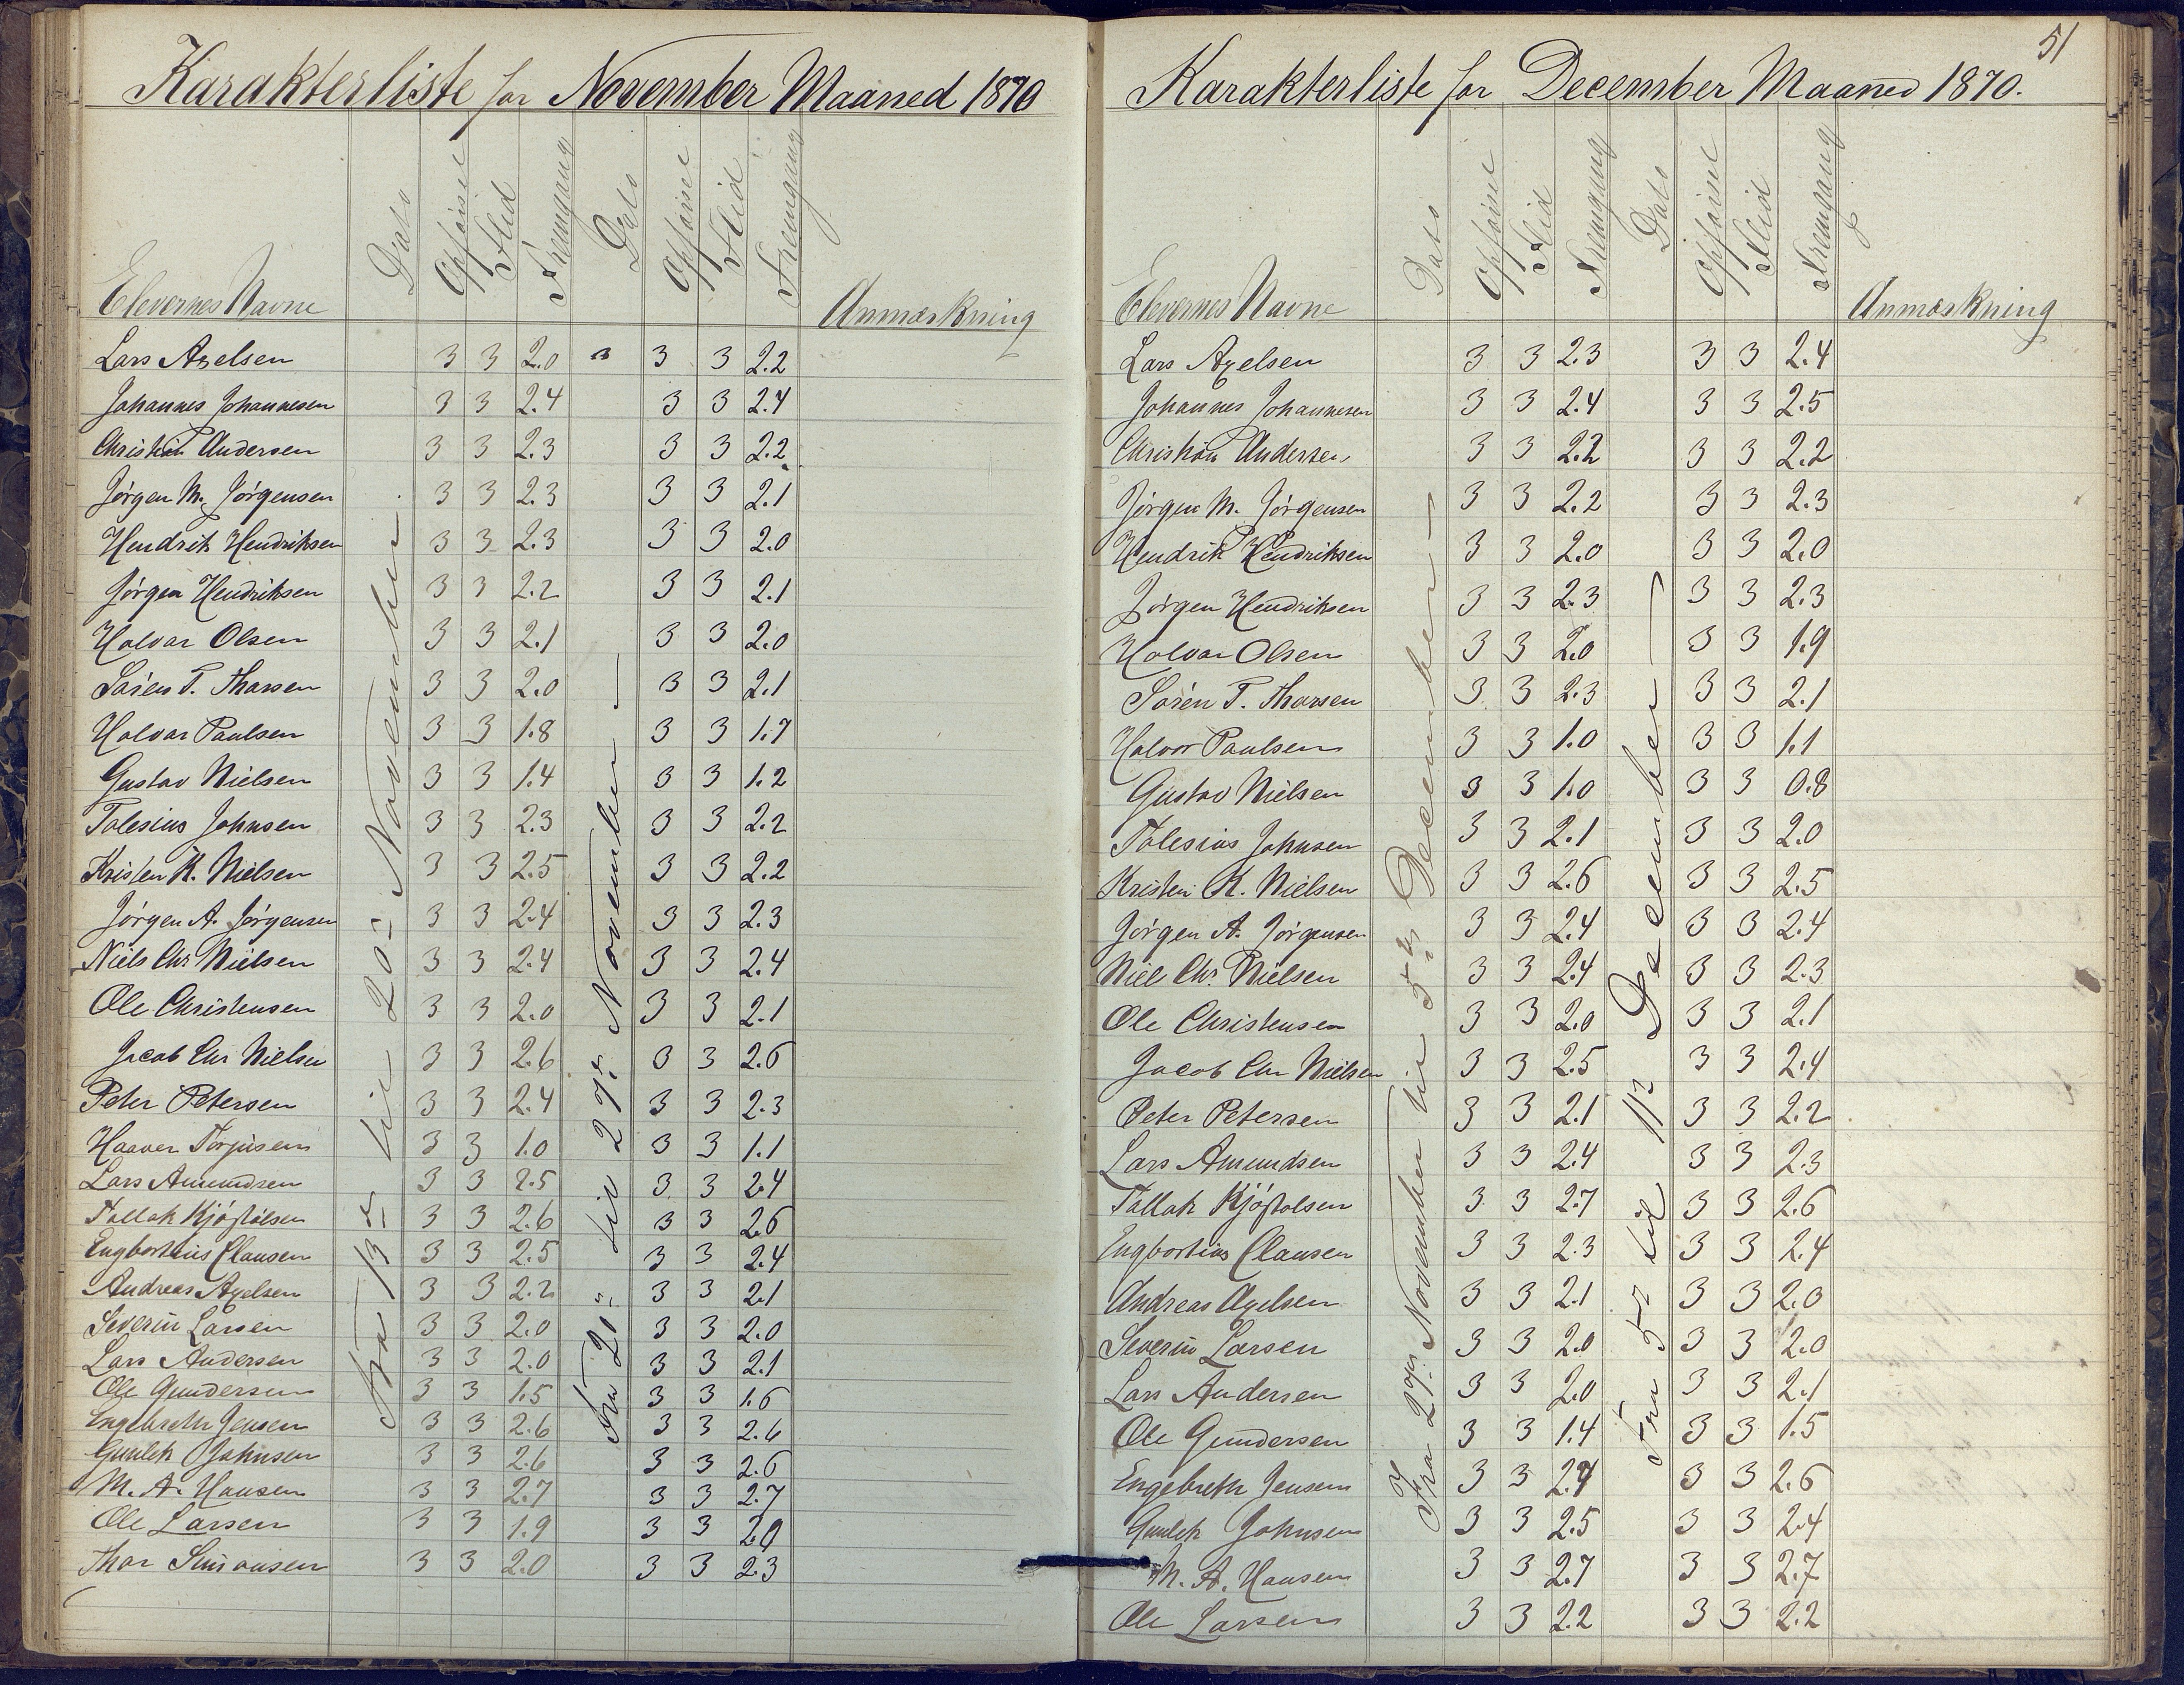 Karakterliste for November Maaned 1870
Elevernes Navne Dato Opførsel Flid Fremgang Dato Opførsel Flid Fremgang Anmærkning
Fra 13de til 20de November
Fra 20de til 27de November
Lars Axelsen 3 3 2.0 3 3 2.2
Johannes Johannesen 3 3 2.4 3 3 2.4
Christian Andersen 3 3 2.3 3 3 2.2
Jørgen M. Jørgensen 3 3 2.3 3 3 2.1
Hendrik Hendriksen 3 3 2.3 3 3 2.0
Jørgen Hendriksen 3 3 2.2 3 3 2.1
Halvar Olsen 3 3 2.1 3 3 2.0
Søren T. Tharsen 3 3 2.0 3 3 2.1
Halvar Paulsen 3 3 1.8 3 3 1.7
Gustav Nielsen 3 3 1.4 3 3 1.2
Talesius Johnsen 3 3 2.3 3 3 2.2
Kristen K. Nielsen 3 3 2.5 3 3 2.2
Jørgen A. Jørgensen 3 3 2.4 3 3 2.3
Niels Chr Nielsen 3 3 2.4 3 3 2.4
Ole Christensen 3 3 2.0 3 3 2.1
Jacob Chr Nielsen 3 3 2.6 3 3 2.6
Peter Petersen 3 3 2.4 3 3 2.3
Haaver Torjusen 3 3 1.0 3 3 1.1
Lars Amundsen 3 3 2.5 3 3 2.4
Tallak Kjøstolsen 3 3 2.6 3 3 2.6
Engbortius Clausen 3 3 2.5 3 3 2.4
Andreas Axelsen 3 3 2.2 3 3 2.1
Severin Larsen 3 3 2.0 3 3 2.0
Lars Andersen 3 3 2.0 3 3 2.1
Ole Gundersen 3 3 1.5 3 3 1.6
Engebreth Jensen 3 3 2.6 3 3 2.6
Gunlek Johnsen 3 3 2.6 3 3 2.6
M. A. Hansen 3 3 2.7 3 3 2.7
Ole Larsen 3 3 1.9 3 3 2.0
Thor Simonsen 3 3 2.0 3 3 2.3
51
Karakterliste for December Maaned 1870.
Elevernes Navne Dato Opførsel Flid Fremgang Dato Opførsel Flid Fremgang Anmærkning
Fra 27de November til 5te December
Fra 5te til 11te December
Lars Axelsen 3 3 2.3 3 3 2.4
Johannes Johannesen 3 3 2.4 3 3 2.5
Christian Andersen 3 3 2.2 3 3 2.2
Jørgen M. Jørgensen 3 3 2.2 3 3 2.3
Hendrik Hendriksen 3 3 2.0 3 3 2.0
Jørgen Hendriksen 3 3 2.3 3 3 2.3
Halvar Olsen 3 3 2.0 3 3 1.9
Søren T. Tharsen 3 3 2.3 3 3 2.1
Halvor Paulsen 3 3 1.0 3 3 1.1
Gustav Nielsen 3 3 1.0 3 3 0.8
Talesius Johnsen 3 3 2.1 3 3 2.0
Kristen K. Nielsen 3 3 2.6 3 3 2.5
Jørgen A. Jørgensen 3 3 2.4 3 3 2.4
Niels Chr. Nielsen 3 3 2.4 3 3 2.3
Ole Christensen 3 3 2.0 3 3 2.1
Jacob Chr Nielsen 3 3 2.5 3 3 2.4
Peter Petersen 3 3 2.1 3 3 2.2
Lars Amundsen 3 3 2.4 3 3 2.3
Tallak Kjøstolsen 3 3 2.7 3 3 2.6
Engbortius Clausen 3 3 2.3 3 3 2.4
Andreas Axelsen 3 3 2.1 3 3 2.0
Severin Larsen 3 3 2.0 3 3 2.0
Lars Andersen 3 3 2.0 3 3 2.1
Ole Gundersen 3 3 1.4 3 3 1.5
Engebreth Jensen 3 3 2.4 3 3 2.6
Gunlek Johnsen 3 3 2.5 3 3 2.4
M. A. Hansen 3 3 2.7 3 3 2.7
Ole Larsen 3 3 2.2 3 3 2.2